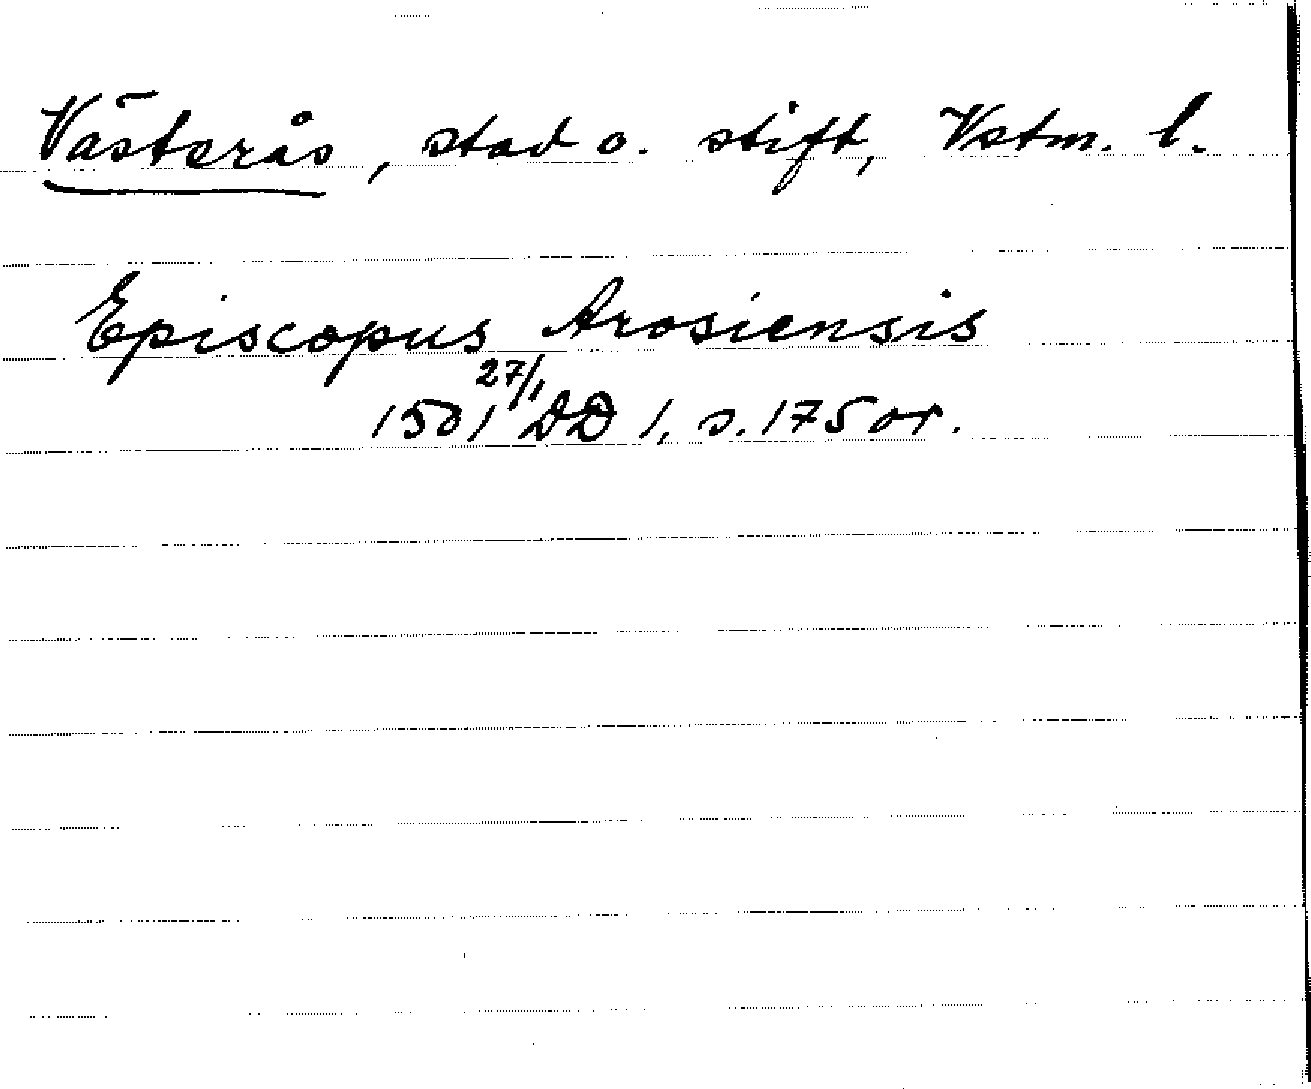 Västerås, stad o. stift, Vstm. l.
Episcopus Arosiensis
1501 27/1 DD 1, s. 175 or.